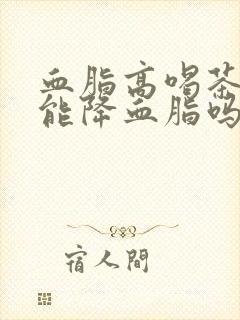 血脂高喝茶
能降血脂吗
宿人間